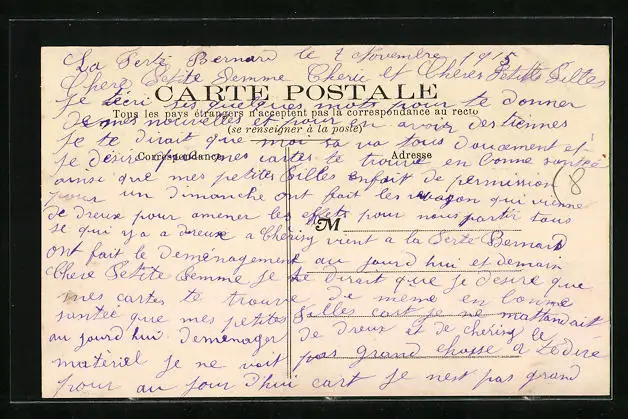 La Ferté Bernard le 7 Novembre 1915
Chere Petite Femme Cherie et Chères Petites Filles
CARTE POSTALE
Je técri ses quelques mots pour te donner
Tous les pays étrangers n'acceptent pas la correspondance au recto
de mes nouvelles et pour en avoir des tiennes
(se renseigner à la poste)
Je te dirait que moi sa va tous doucement et
Je désire que mes cartes te trouve en bonne santée
Correspondance
Adresse
ainsi que mes petites filles enfait de permission
8
pour un dimanche ont fait les wagon qui vienne
de Dreux pour amener les effets pour nous partir tous
M
se qui y a a Dreux a Cherisy vient a la Ferte Bernard
ont fait le Deménagement au jourd hui et demain
Chere Petite Femme Je te dirait que je desire que
mes cartes te trouve de meme en bonne
santée que mes petites filles cart je ne mattandait
au jourd hui demenager de Dreux et de Cherisy le
matériel je ne voit pas grand chosse a te dire
pour au jour d'hui cart je nest pas grand